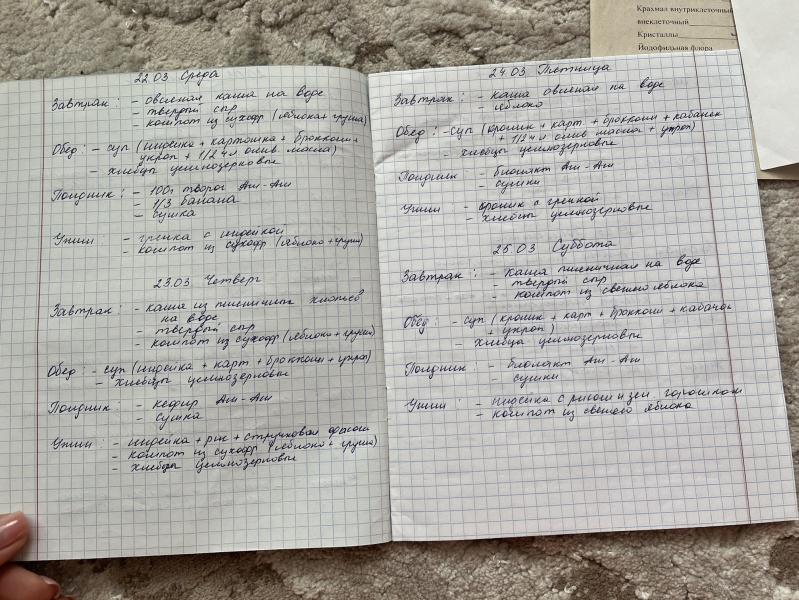 22.03 Среда
Завтрак: - овсяная каша на воде
- твёрдый сыр
- компот из сухофр (яблоко + груша)
Обед: - суп (индейка + картошка + брокколи +
укроп + 1/2 ч л олив масла)
- хлебцы цельнозерновые
Полдник: - 100г творог Аш-Аш
- 1/3 банана
- сушка
Ужин - гречка с индейкой
- компот из сухофр (яблоко + груша)
23.03 Четверг
Завтрак: - каша из пшеничных хлопьев
на воде
- твёрдый сыр
- компот из сухофр (яблоко + груша)
Обед: - суп (индейка + карт + брокколи + укроп)
- хлебцы цельнозерновые
Полдник: - кефир Аш-Аш
- сушка
Ужин: - индейка + рис + стручковая фасоль
- компот из сухофр (яблоко + груша)
- хлебцы цельнозерновые
24.03 Пятница
Завтрак: - каша овсяная на воде
- яблоко
Обед: - суп (кролик + карт + брокколи + кабачок
+ 1/2 ч л олив масла + укроп)
- хлебцы цельнозерновые
Полдник - биолакт Аш-Аш
- сушки
Ужин - кролик с гречкой
- хлебцы цельнозерновые
25.03 Суббота
Завтрак: - каша пшеничная на воде
- твёрдый сыр
- компот из свежего яблока
Обед: - суп (кролик + карт + брокколи + кабачок
+ укроп)
- хлебцы цельнозерновые
Полдник: - биолакт Аш-Аш
- сушки
Ужин: - индейка с рисом и зел. горошком
- компот из свежего яблока
Крахмал внутриклеточный
внеклеточный
Кристаллы
Йодофильная флора